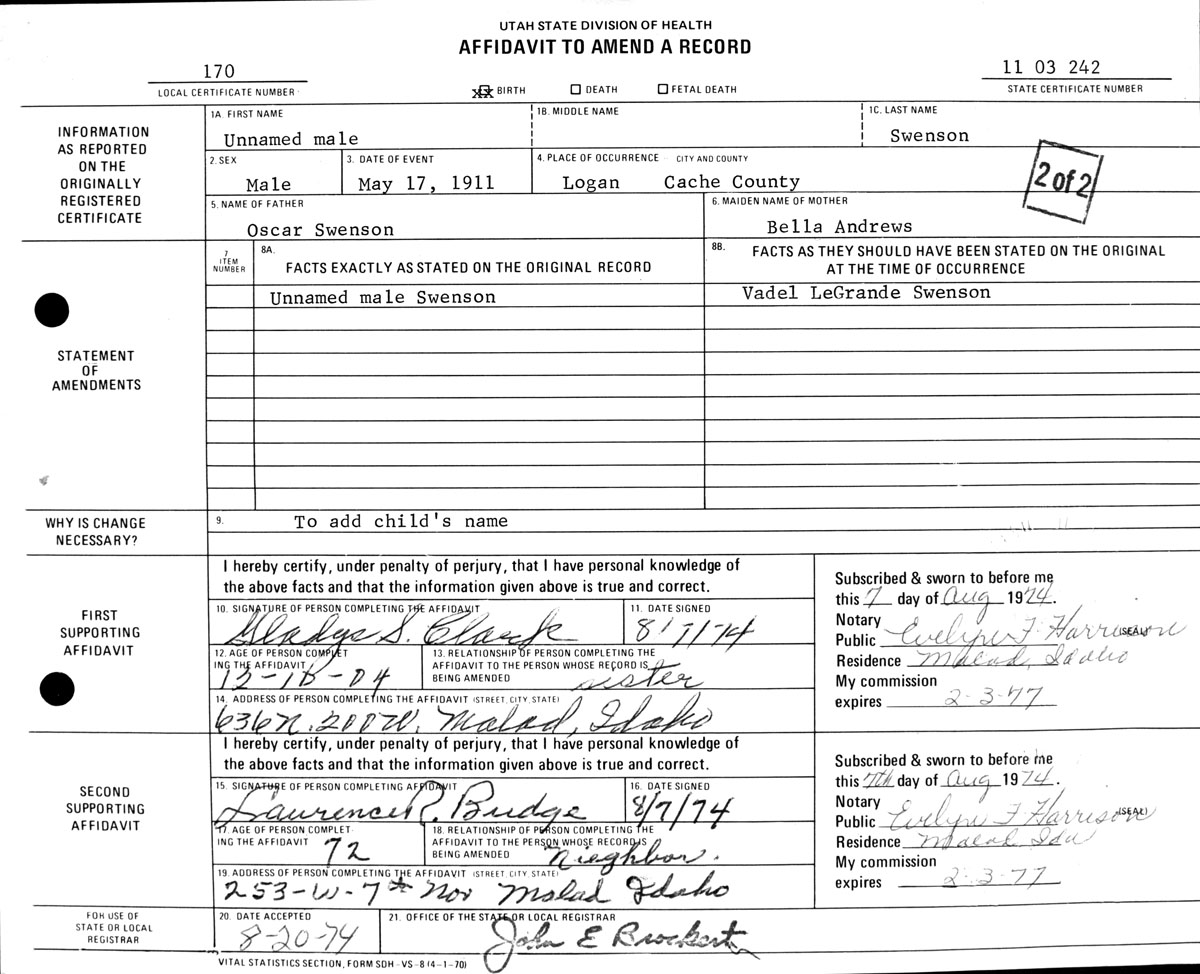 UTAH STATE DIVISION OF HEALTH
AFFIDAVIT TO AMEND A RECORD
170
LOCAL CERTIFICATE NUMBER
XX BIRTH DEATH FETAL DEATH
11 03 242
STATE CERTIFICATE NUMBER
INFORMATION
AS REPORTED
ON THE
ORIGINALLY
REGISTERED
CERTIFICATE
1A FIRST NAME
Unnamed male
1B. MIDDLE NAME
1C. LAST NAME
Swenson
2. SEX
Male
3. DATE OF EVENT
May 17, 1911
4. PLACE OF OCCURRENCE CITY AND COUNTY
Logan Cache County
2 of 2
5. NAME OF FATHER
Oscar Swenson
6. MAIDEN NAME OF MOTHER
Bella Andrews
STATEMENT
OF
AMENDMENTS
7
ITEM
NUMBER
8A.
FACTS EXACTLY AS STATED ON THE ORIGINAL RECORD
8B. FACTS AS THEY SHOULD HAVE BEEN STATED ON THE ORIGINAL
AT THE TIME OF OCCURRENCE
Unnamed male Swenson
Vadel LeGrande Swenson
WHY IS CHANGE
NECESSARY?
9. To add child's name
FIRST
SUPPORTING
AFFIDAVIT
I hereby certify, under penalty of perjury, that I have personal knowledge of
the above facts and that the information given above is true and correct.
10. SIGNATURE OF PERSON COMPLETING THE AFFIDAVIT
Gladys S. Clark
11. DATE SIGNED
8/7/74
12. AGE OF PERSON COMPLET
ING THE AFFIDAVIT
13. RELATIONSHIP OF PERSON COMPLETING THE
AFFIDAVIT TO THE PERSON WHOSE RECORD IS
BEING AMENDED
sister
14. ADDRESS OF PERSON COMPLETING THE AFFIDAVIT (STREET, CITY, STATE)
636 N. 200 W. Malad, Idaho
Subscribed & sworn to before me
this 7 day of Aug 1974.
Notary
Public Evelyn F Harrison (SEAL)
Residence Malad, Idaho
My commission
expires 2-3-77
SECOND
SUPPORTING
AFFIDAVIT
I hereby certify, under penalty of perjury, that I have personal knowledge of
the above facts and that the information given above is true and correct.
15. SIGNATURE OF PERSON COMPLETING AFFIDAVIT
Laurence R. Budge
16. DATE SIGNED
8/7/74
17. AGE OF PERSON COMPLET
ING THE AFFIDAVIT
72
18. RELATIONSHIP OF PERSON COMPLETING THE
AFFIDAVIT TO THE PERSON WHOSE RECORD IS
BEING AMENDED
Nieghbor.
19. ADDRESS OF PERSON COMPLETING THE AFFIDAVIT (STREET, CITY, STATE)
253-W-7th Nor Malad Idaho
Subscribed & sworn to before me
this 7th day of Aug 1974.
Notary
Public Evelyn F Harrison (SEAL)
Residence Malad, Ida
My commission
expires 2-3-77
FOR USE OF
STATE OR LOCAL
REGISTRAR
20. DATE ACCEPTED
8-20-74
21. OFFICE OF THE STATE OR LOCAL REGISTRAR
John E Brockert
VITAL STATISTICS SECTION, FORM SDH-VS-8 (4-1-70)